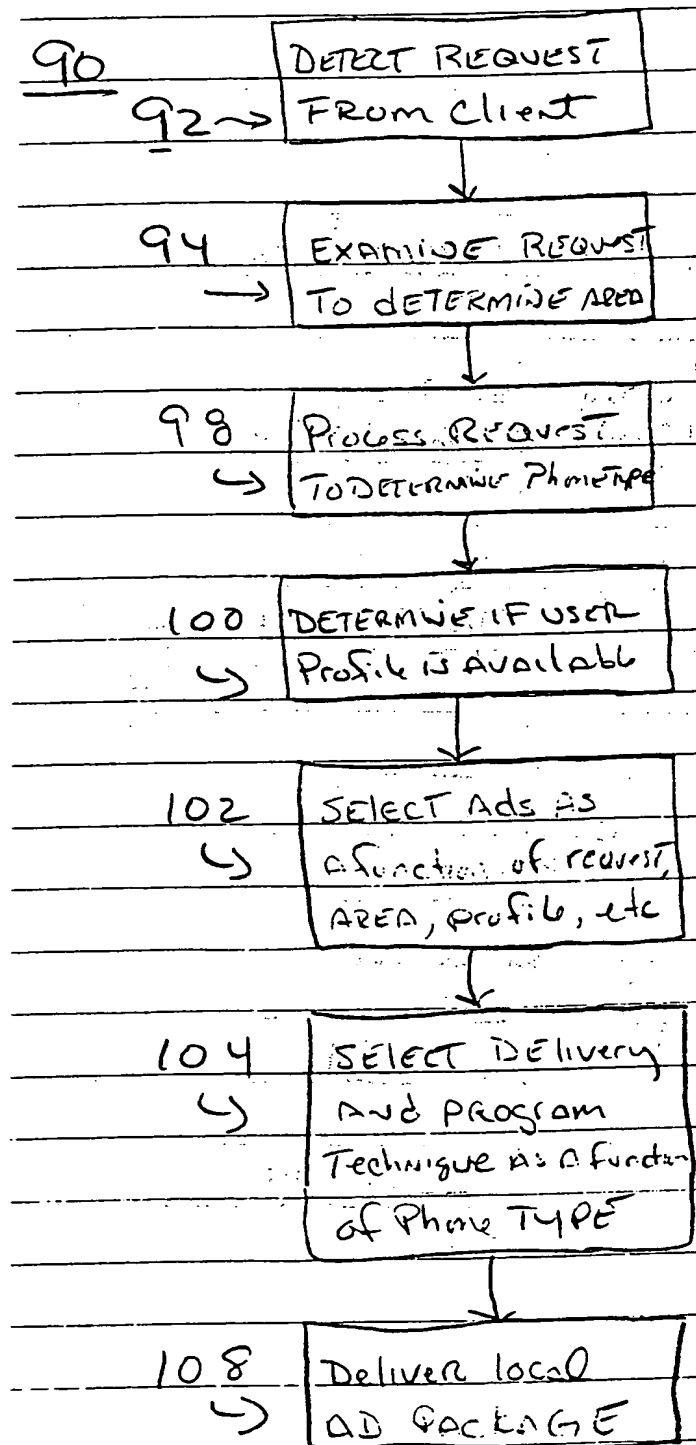 90
92 DETECT REQUEST
FROM Client
94 EXAMINE REQUEST
TO dETERMINE AREA
98 Process REQUEST
TO DETERMINE Phone TYPE
100 DETERMINE IF USER
Profile is AVAilAble
102 SELECT Ads AS
A function of request,
AREA, profile, etc
104 SELECT DElivery
And program
Technique As A function
of Phone TYPE
108 Deliver local
AD PACKAGE